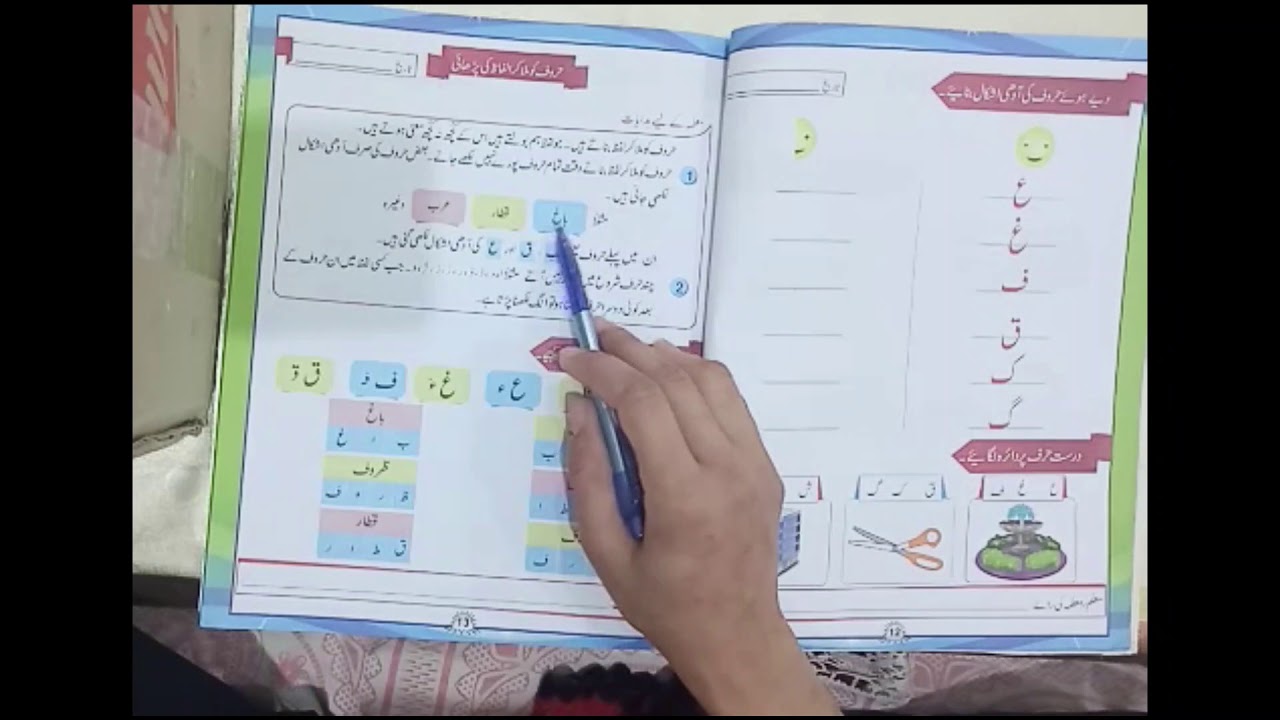 دیے ہوئے حروف کی آدھی اشکال بنائیے۔
تاریخ
ع
غ
ف
ق
ک
گ
درست حرف پر دائرہ لگائیے۔
ع غ ف
ق ک گ
ش
معلم/معلمہ کی رائے
12
حروف کو ملا کر الفاظ کی پڑھائی
تاریخ
معلمہ کے لیے ہدایات
1 حروف کو ملا کر لفظ بناتے ہیں۔ جو لفظ ہم بولتے ہیں اس کے کچھ نہ کچھ معنی ہوتے ہیں۔
حروف کو ملا کر لفظ بناتے وقت تمام حروف پورے نہیں لکھے جاتے۔ بعض حروف کی صرف آدھی اشکال
لکھی جاتی ہیں۔
مثلاً باغ قطار عرب وغیرہ
ان میں پہلے حروف ق اور ع کی آدھی اشکال لکھی گئی ہیں۔
2 چند حرف شروع میں جب کسی لفظ میں ان حروف کے
بعد کوئی دوسرا ہو تو الگ لکھنا پڑتا ہے۔
ع غ ف ق
باغ
ب ا غ
ظروف
ظ ر و ف
قطار
ق ط ا ر
13